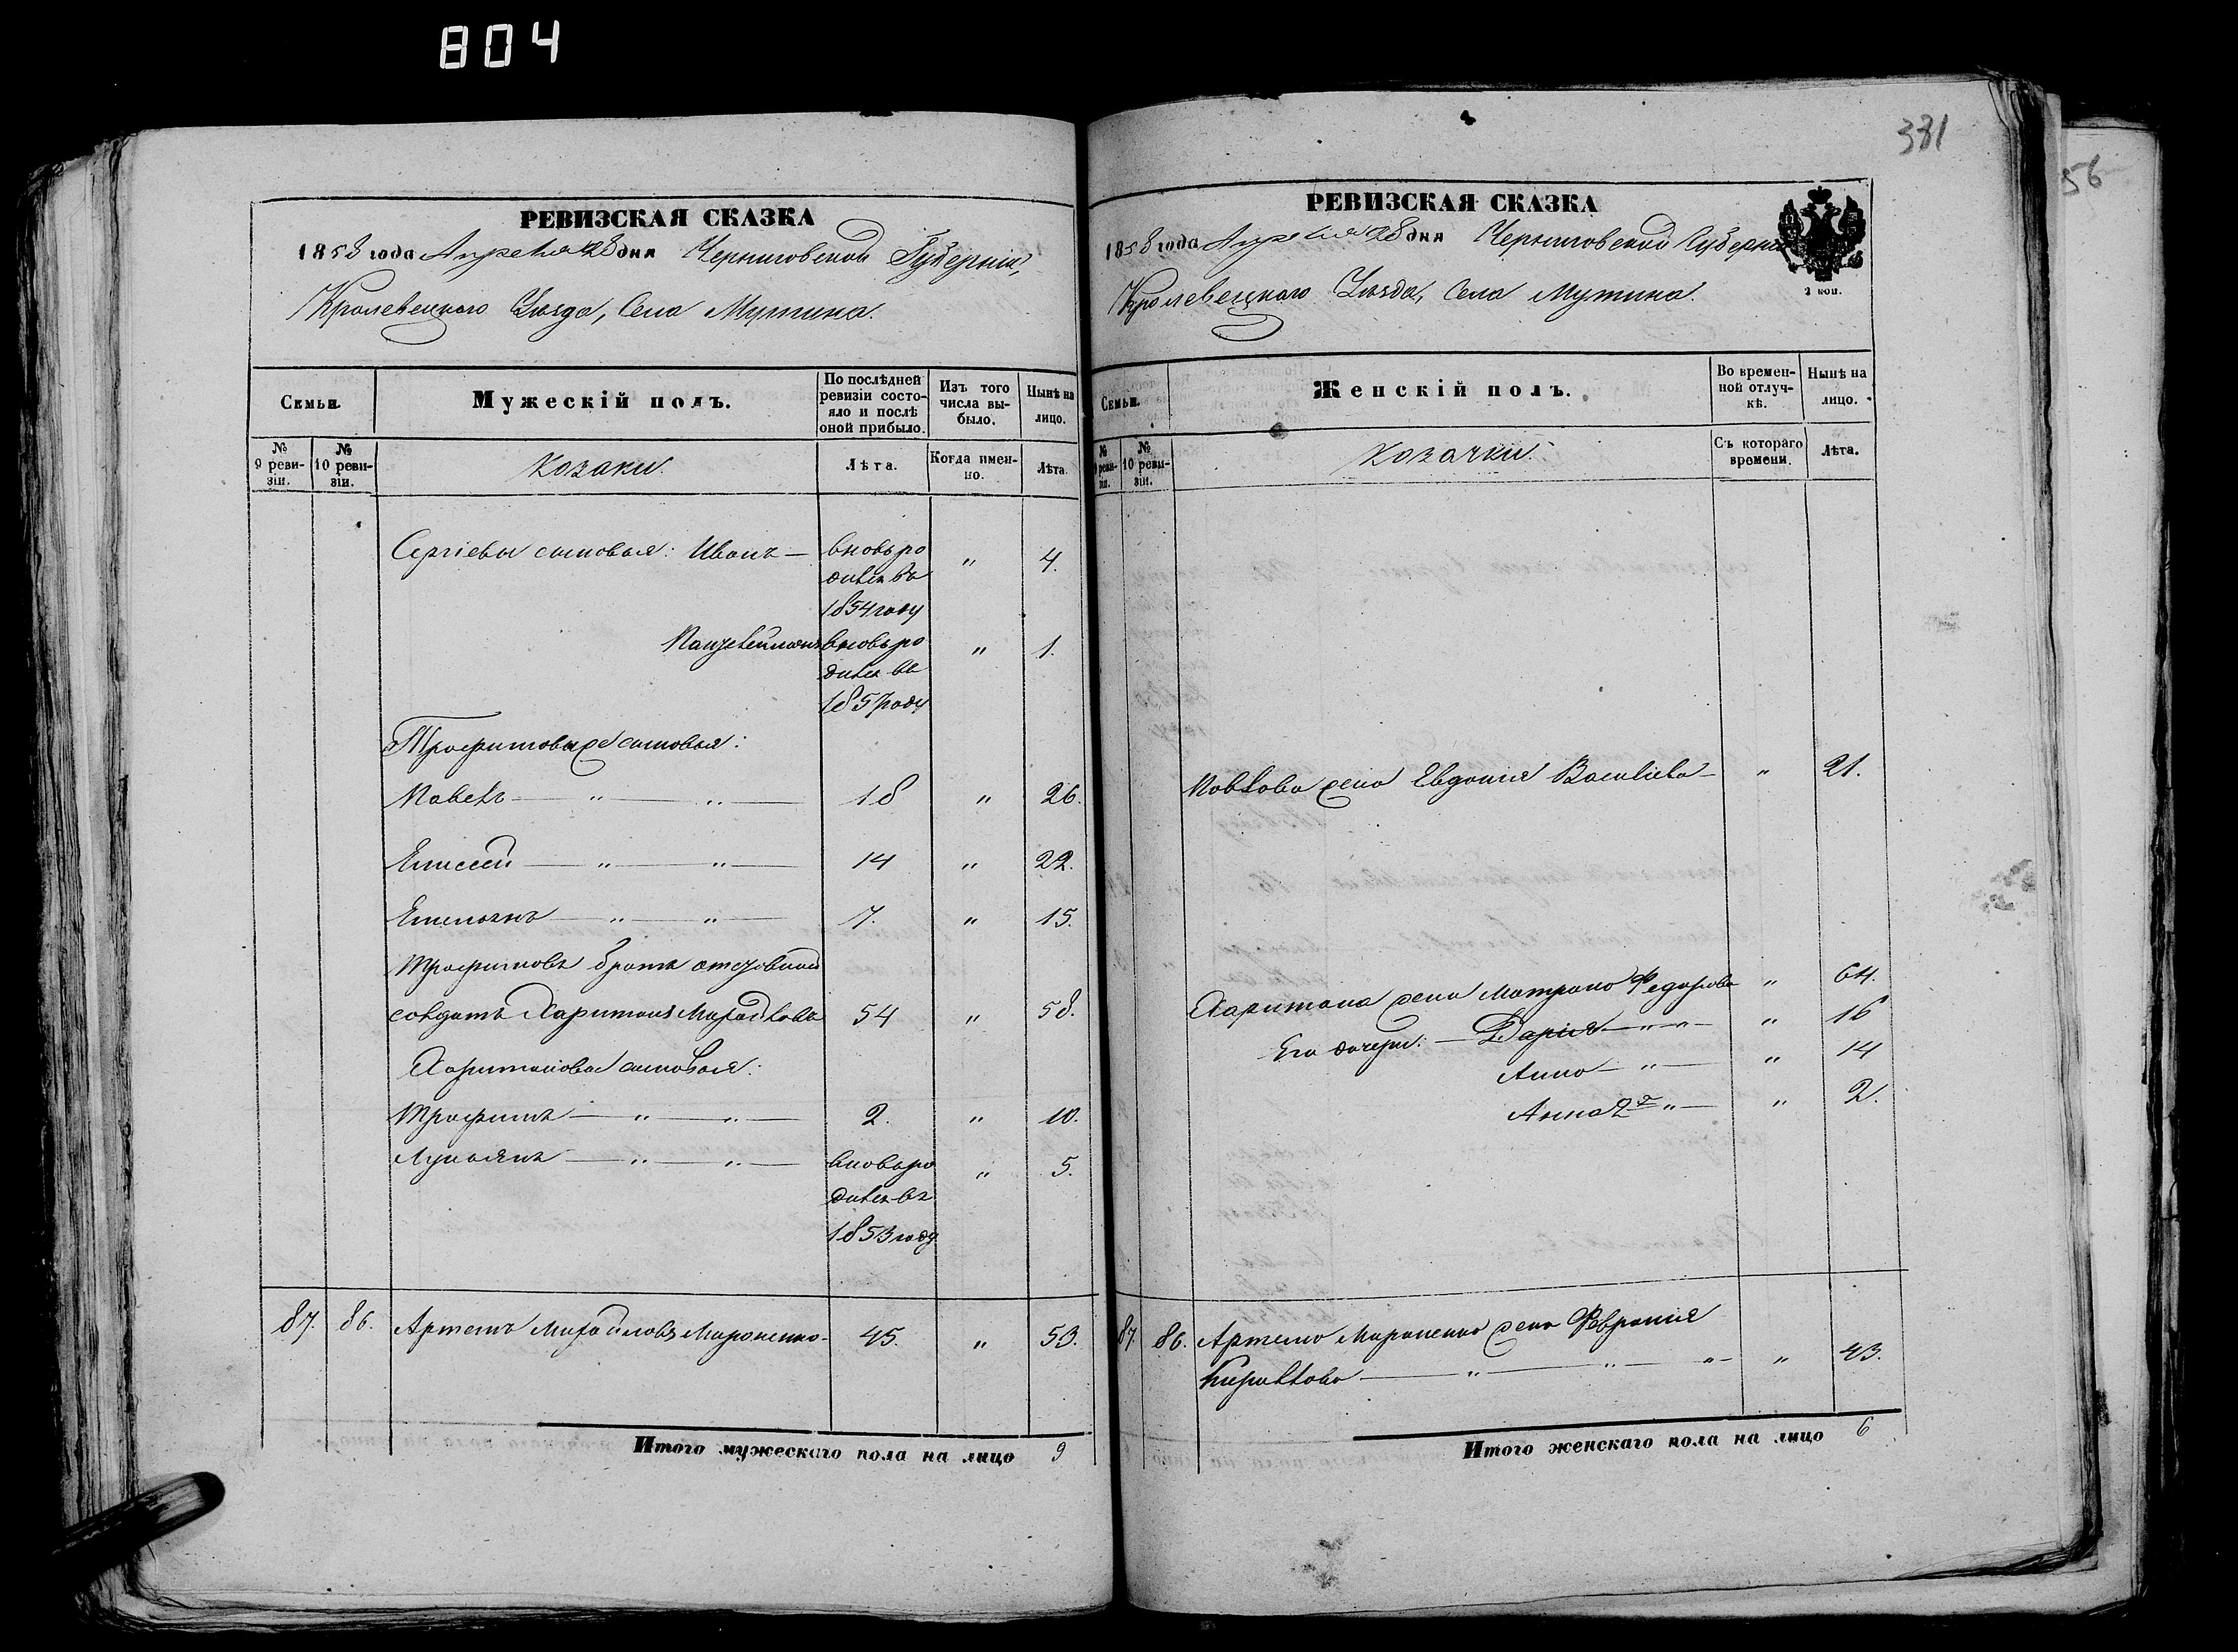 804
381
56
РЕВИЗСКАЯ СКАЗКА
1858 года Апреля 28 дня Черниговской Губерніи,
Кролевецкаго Уезда, Села Мутина.
Семьи.
Мужескій полъ.
По послѣдней ревизіи состояло и послѣ оной прибыло.
Изъ того числа выбыло.
Нынѣ на лицо.
№ 9 ревизіи.
№ 10 ревизіи.
Козаки.
Лѣта.
Когда именно.
Лѣта.
Сергіевы сыновья: Иванъ — вновь ро " 4.
дился въ
1854 году
Пантелеймонъ вновь ро " 1.
дился въ
1857 году
Трофимовы сыновья:
Павелъ — " — " — 18 " 26.
Елисей — " — " — 14 " 22.
Емельянъ — " — " — 7. " 15.
Трофимовъ братъ
солдатъ Харитонъ Михайловъ 54 " 58.
Харитоновы сыновья:
Трофимъ — " — " — 2. " 10.
Лукьянъ — " — " — вновь ро " 5.
дился въ
1853 году
87. 86. Артемъ Михайловъ Мироненко - 45. " 53.
Итого мужескаго пола на лицо 9
РЕВИЗСКАЯ СКАЗКА
1858 года Апреля 28 дня Черниговской Губерніи
Кролевецкаго Уезда, Села Мутина.
2 коп.
Семьи.
Женскій полъ.
Во временной отлучкѣ.
Нынѣ на лицо.
№ 9 ревизіи.
№ 10 ревизіи.
Козачки.
Съ котораго времени.
Лѣта.
Павлова жена Евдокія Василіева — " 21.
Харитона жена Матрона Федорова " 64.
Его дочери: — Дарія — " — " — " 16
Анна — " — " 14
Анна 2я " — " 2.
87 86. Артема Мироненка жена Феврония
Кирилова — " — " — " — " 43.
Итого женскаго пола на лицо 6